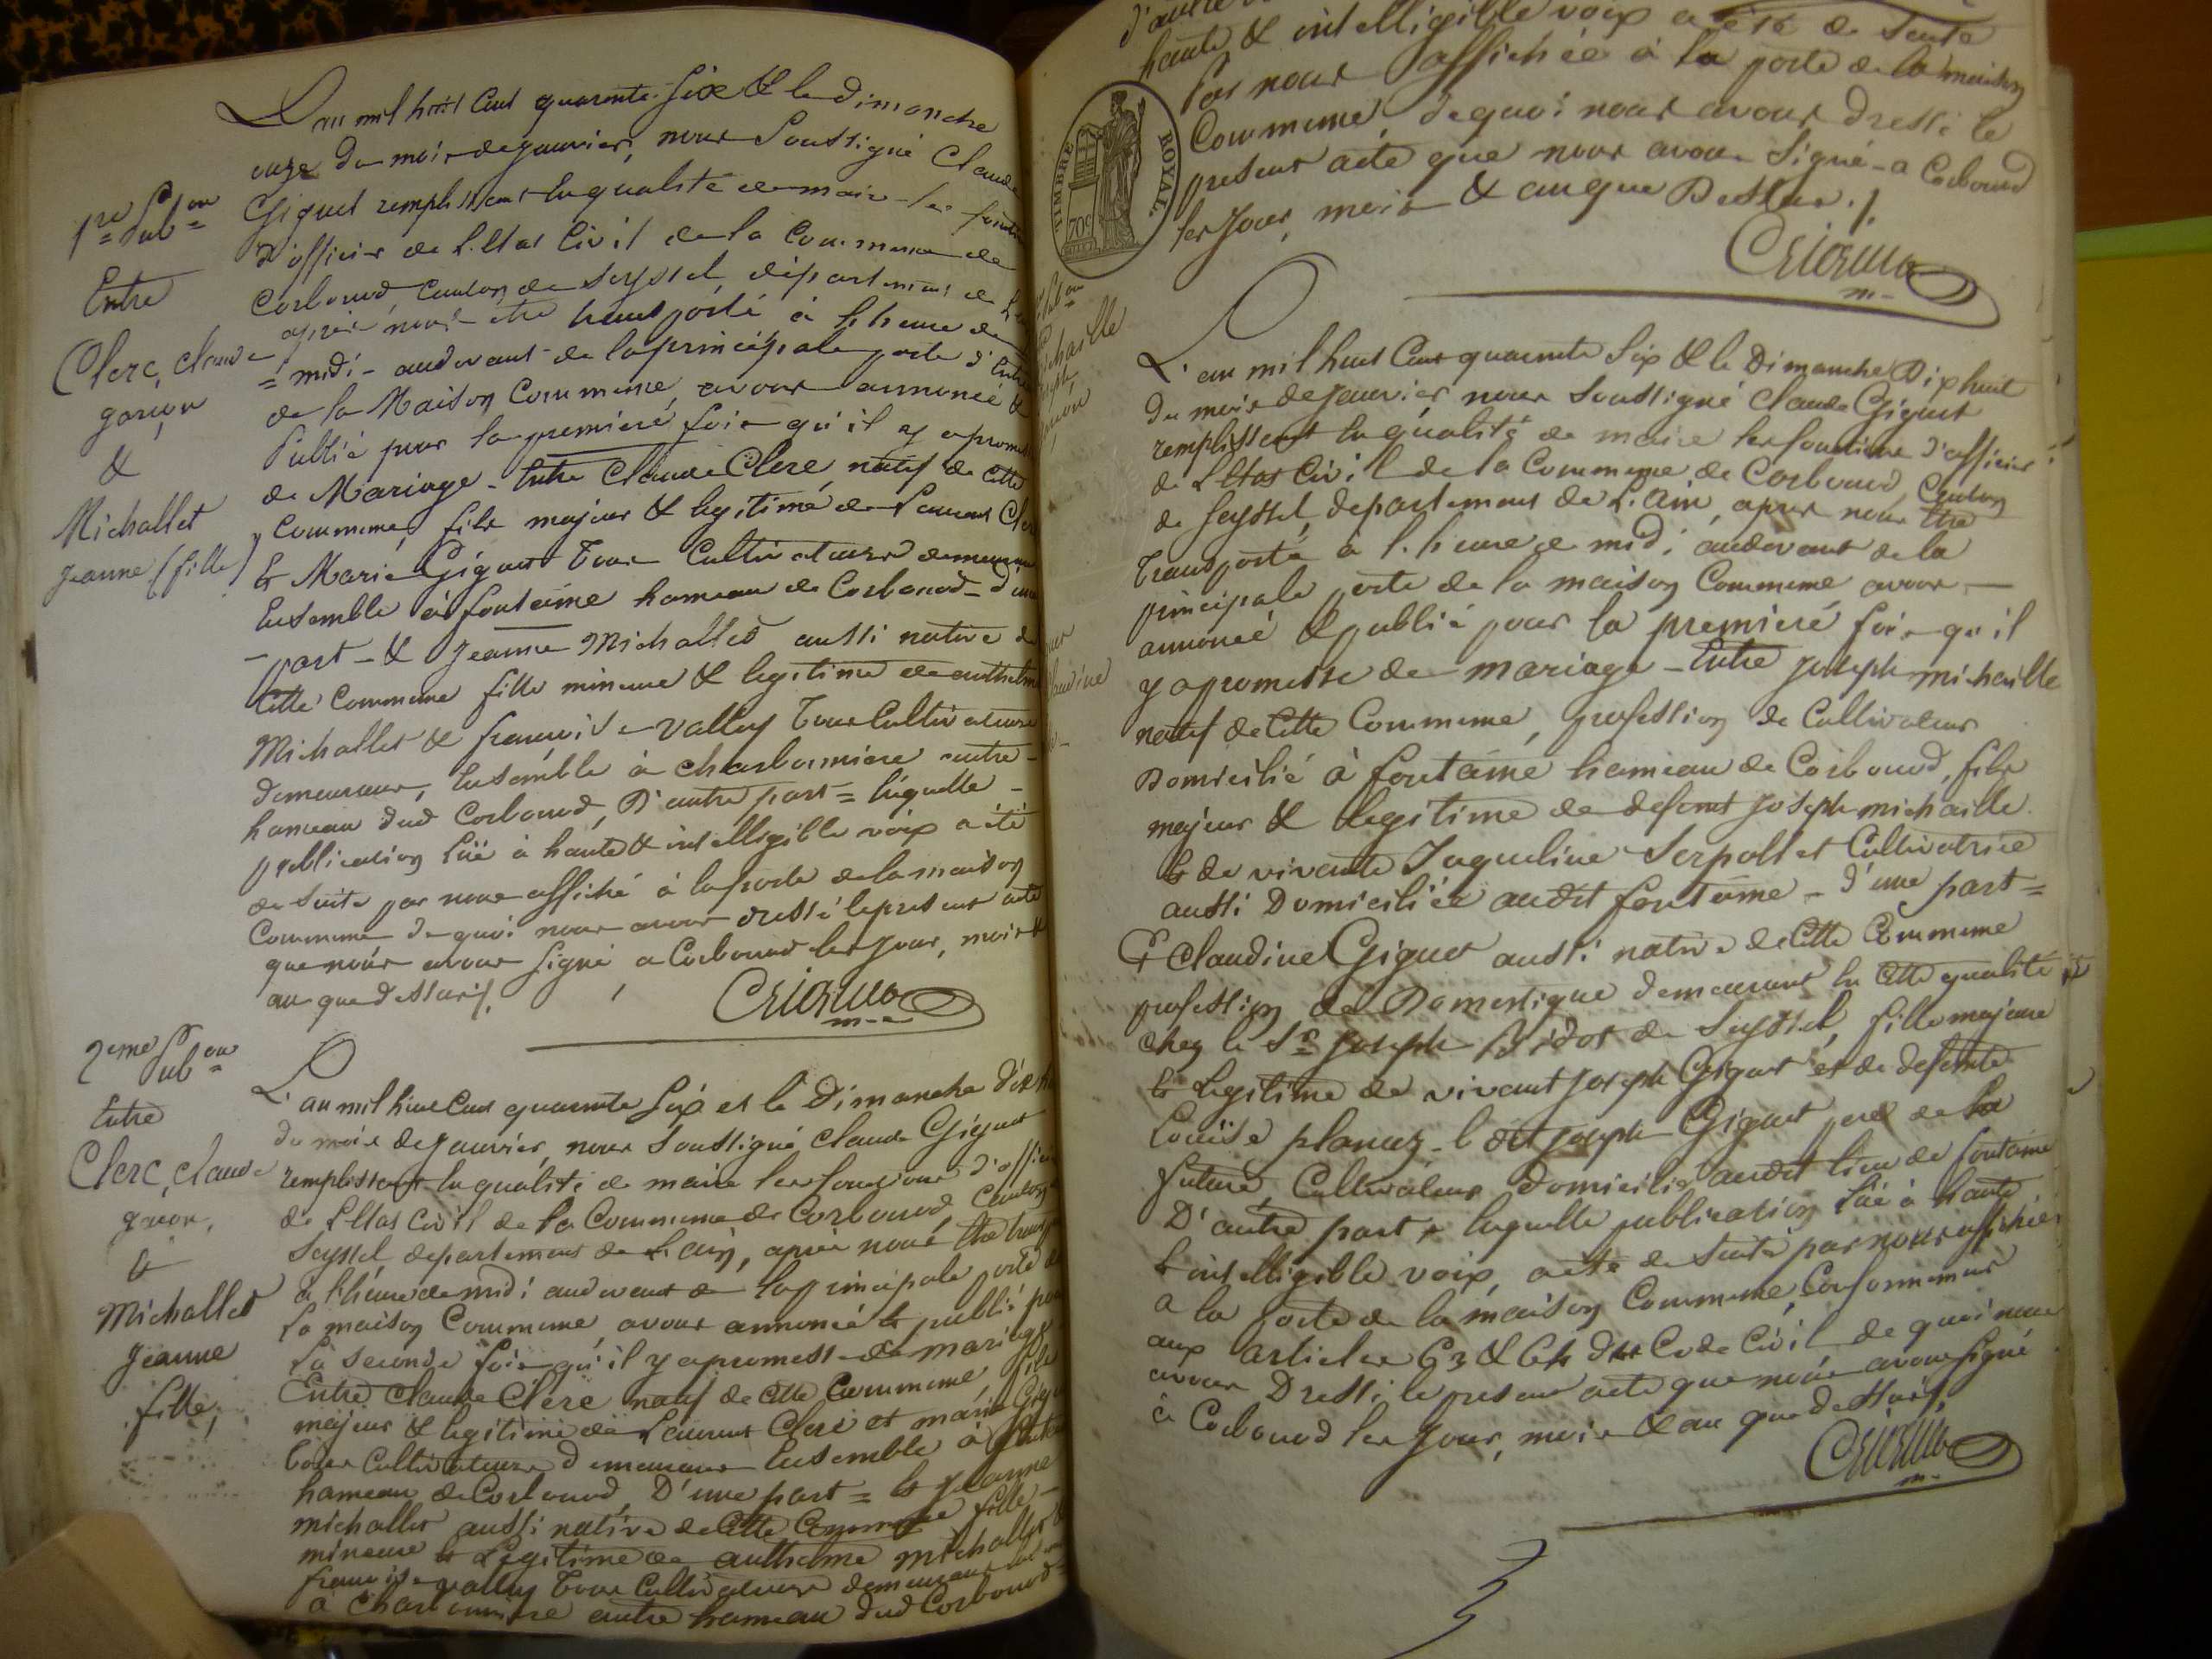 L'an mil huit Cent quarante-six & le dimanche
onze du mois de janvier, nous Soussigné Claude
Giguet remplissant en la qualité de maire les
d'officier de L'Etat Civil de la Commune de
Corbonod, Canton de Seyssel, département de
après nous être transporté à l'heure de
= midi - audevant de la principale porte d'
de la Maison Commune, avons annoncé &
Publié pour la première fois qu'il y a promesse
de Mariage - Entre Claude Clerc, natif de cette
Commune, fils majeur & legitime de Laurent
& Marie Giguet Tous Cultivateurs
Ensemble à fontaine hameau de Corbonod -
- part - & Jeanne Michallet aussi native de
Cette Commune fille mineure & legitime de anthelme
Michallet & françoise vallet Tous Cultivateurs
demeurant, Ensemble à charbonnière autre -
hameau dud Corbonod, D'autre part = laquelle -
publication lüe à haute & intelligible voix a été
de suite par nous affiché à la porte de la maison
Commune de quoi nous avons dressé le présent acte
que nous avons signé a Corbonod les jour, mois &
an que dessus /.
1re Pubon
Entre
Clerc, Claude
garçon
&
Michallet
jeanne (fille)
L'an mil huit Cent quarante Six et le Dimanche
du mois de janvier, nous Soussigné Claude Giguet
remplissant en la qualité de maire les fonctions d'officier
de L'Etat Civil de la Commune de Corbonod, Canton
Seyssel, departement de L'ain, après nous être
a l'heure de midi audevant de la principale porte
la maison Commune, avons annoncé & publié
la seconde fois qu'il y a promesse de mariage
Entre Claude Clerc natif de cette Commune, fils
majeur & legitime de Laurent Clerc et marie
tous Cultivateurs demeurant Ensemble à
hameau de Corbonod, D'une part = & Jeanne
michallet aussi native de Cette Commune fille -
mineure & Legitime de anthelme michallet
françoise vallet Tous Cultivateurs demeurant
à charbonnière autre hameau dud Corbonod
2eme Pubon
Entre
Clerc, Claude
garçon,
&
Michallet
jeanne
fille,
haute & intelligible voix a été de suite
Par nous affichée à la porte de la maison
Commune, de quoi nous avons dressé le
present acte que nous avons signé - a Corbonod
les jour, mois & an que Dessus ./.
TIMBRE ROYAL.
70c
L'an mil huit Cent quarante Six & le Dimanche Dix huit
du mois de janvier, nous Soussigné Claude Giguet
remplissant en la qualité de maire les fonctions d'officier
de L'Etat Civil de la Commune de Corbonod, Canton
de Seyssel, departement de L'Ain, apres nous être
Transporté à l'heure de midi audevant de la
principale porte de la maison Commune, avons -
annoncé & publié pour la premiere fois qu'il
y a promesse de mariage - Entre joseph michaille
natif de Cette Commune, profession de Cultivateur
Domicilié à fontaine hameau de Corbonod, fils
majeur & legitime de defunt joseph michaille
& de vivante Jaqueline Serpollet Cultivatrice
aussi Domiciliée audit fontaine - d'une part =
& Claudine Giguet aussi native de Cette Commune
profession de Domestique demeurant en Cette qualité
chez le Sr joseph de Seyssel, fille majeure
& Legitime de vivant joseph Giguet et de defunte
Louise - ledit joseph Giguet pere de la
future, Cultivateur Domicilié audit lieu de fontaine
D'autre part, laquelle publication lüe à haute
& intelligible voix, a été de suite par nous affichée
a la porte de la maison Commune, Conformement
aux articles 63 & 64 du Code Civil de quoi nous
avons Dressé le present acte que nous avons signé
à Corbonod les jour, mois & an que dessus /.